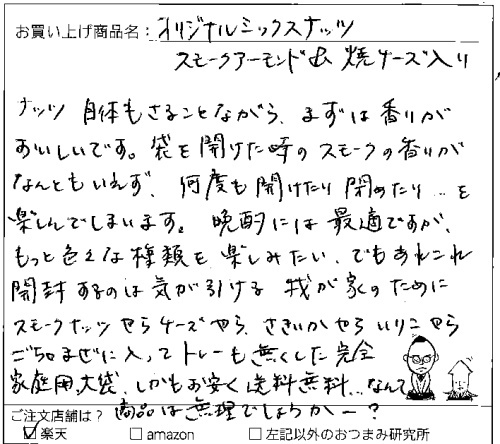 お買い上げ商品名：オリジナルミックスナッツ
スモークアーモンド&焼チーズ入り
ナッツ自体もさることながら、まずは香りが
おいしいです。袋を開けた時のスモークの香りが
なんともいえず、何度も開けたり閉めたり…を
楽しんでしまいます。晩酌には最適ですが、
もっと色々な種類を楽しみたい、でもあれこれ
開封するのは気が引ける我が家のために
スモークナッツやらチーズやら、さきいかやらいりこやら
ごちゃまぜに入ってトレーも無くした完全
家庭用大袋、しかもお安く送料無料…なんて
商品は無理でしょうかー？
ご注文店舗は？
☑楽天 □amazon □左記以外のおつまみ研究所